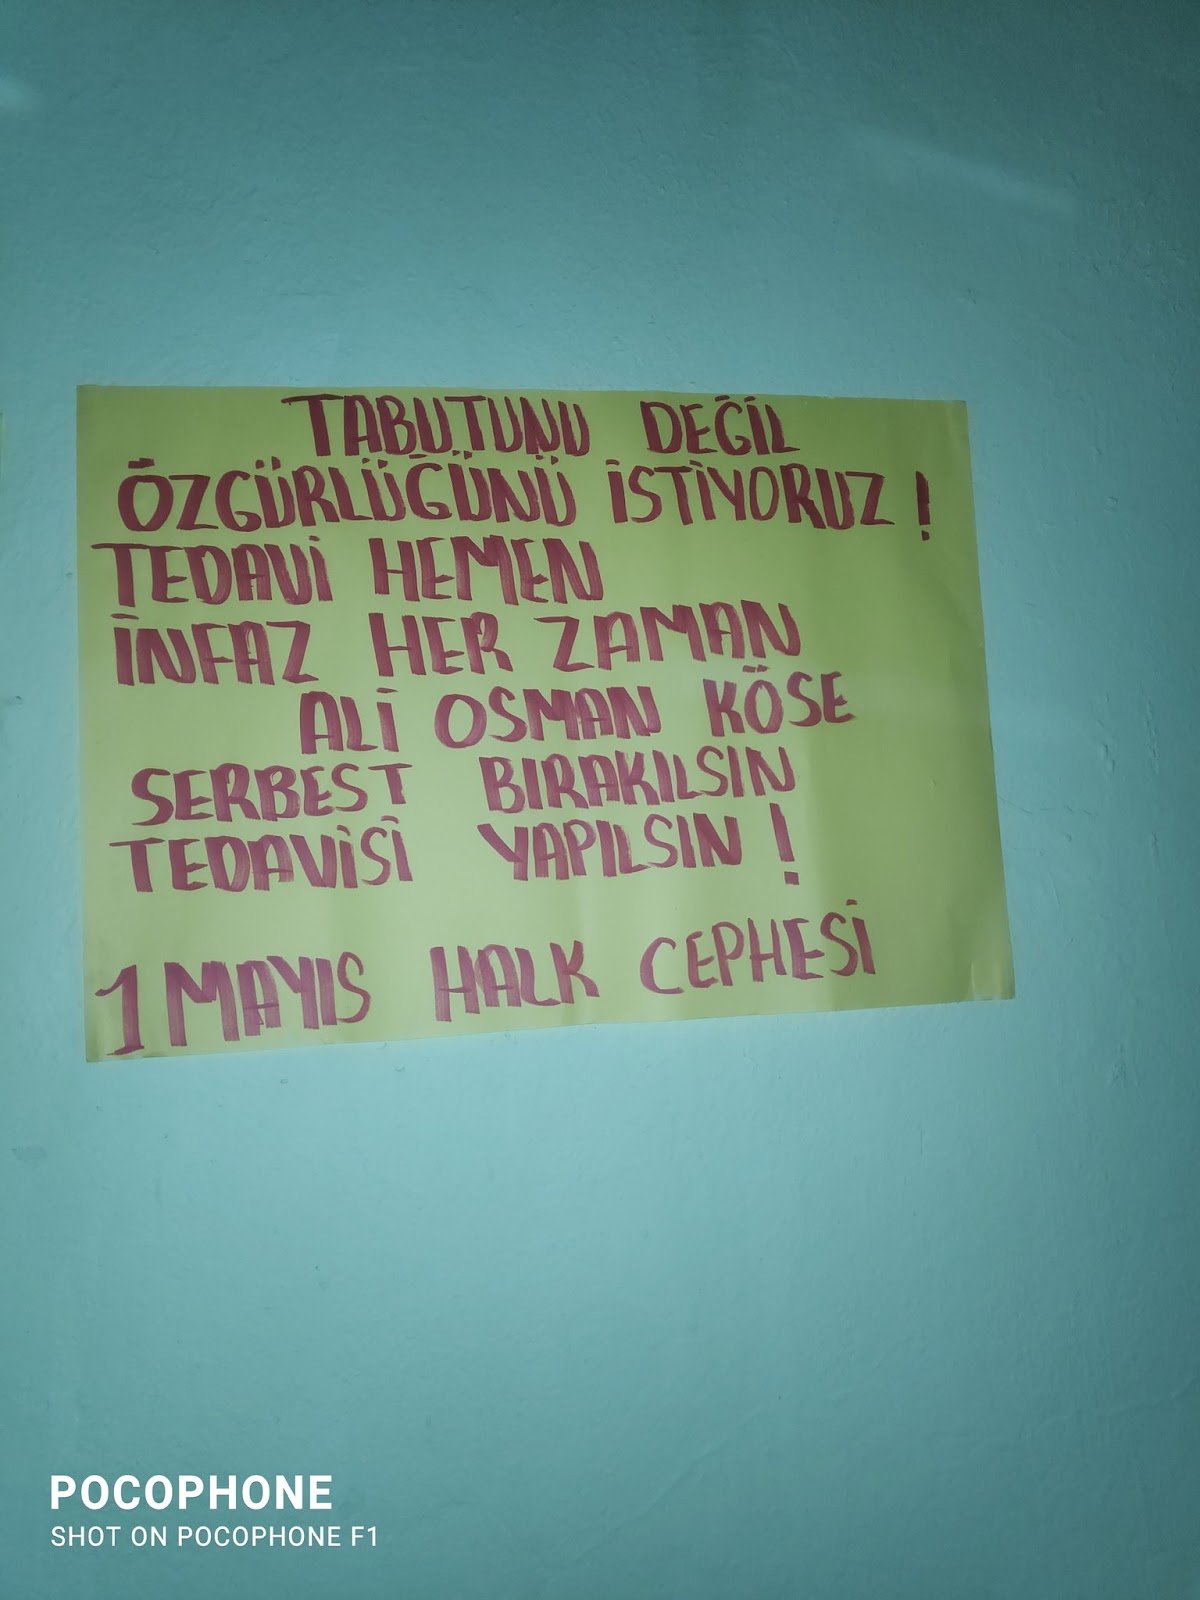 TABUTUNU DEĞİL
ÖZGÜRLÜĞÜNÜ İSTİYORUZ !
TEDAVİ HEMEN
İNFAZ HER ZAMAN
ALİ OSMAN KÖSE
SERBEST BIRAKILSIN
TEDAVİSİ YAPILSIN !
1 MAYIS HALK CEPHESİ
POCOPHONE
SHOT ON POCOPHONE F1